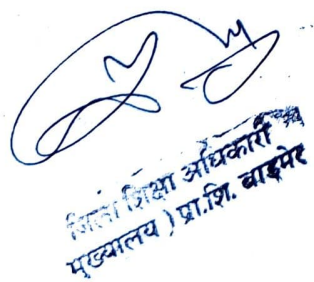 जिला शिक्षा अधिकारी
मुख्यालय ) प्रा.शि. बाड़मेर